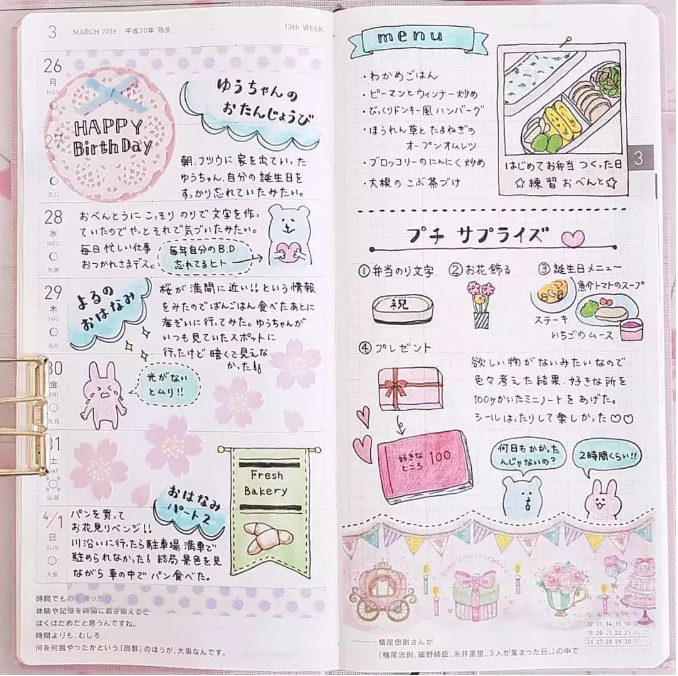 3 MARCH 2018 平成30年 弥生
13th WEEK
26
月
MON
HAPPY
BirthDay
ゆうちゃんの
おたんじょうび
27
朝、フツウに家を出ていった
ゆうちゃん。自分の誕生日を
すっかり忘れていたみたい。
28
水
WED
先勝
おべんとうにこっそりのりで文字を作っ
ていたのでやっとそれで気づいたみたい。
毎日忙しい仕事
おつかれさまデス。
毎年自分のB.D
忘れてるヒト
29
木
THU
友引
よるの
おはなみ
桜が満開に近い!!という情報
をみたのでばんごはん食べたあとに
海ぞいに行ってみた。ゆうちゃんが
いつも見ていたスポットに
行ったけど暗くて見えな
かった
30
金
FRI
先負
光がない
とムリ!!
31
土
SAT
仏滅
Fresh
Bakery
おはなみ
パート2
4/1
日
SUN
大安
パンを買って
お花見リベンジ!!
川沿いに行ったら駐車場満車で
駐められなかった 結局景色を見
ながら車の中でパン食べた。
時間でものを
体験や記憶を時間に置き換えると
ぼくはだめだと思うんですね。
時間よりも、むしろ
何を何回やったかという「回数」のほうが、大事なんです。
menu
・わかめごはん
・ピーマンとウィンナー炒め
・びっくりドンキー風ハンバーグ
・ほうれん草とたまねぎの
オープンオムレツ
・ブロッコリーのにんにく炒め
・大根のこぶ茶づけ
はじめてお弁当つくった日
☆練習おべんと☆
3
プチ サプライズ
①弁当のり文字
祝
②お花飾る
③誕生日メニュー
魚介トマトのスープ
ステーキ
いちごのムース
④プレゼント
好きな
ところ 100
欲しい物がないみたいなので
色々考えた結果、好きな所を
100ケかいたミニノートをあげた。
シールはったりして楽しかった♡♡
何日もかかった
んじゃないの?
2時間くらい!!
横尾忠則さんが
「横尾忠則、細野晴臣、糸井重里、3人が集まった日。」の中で